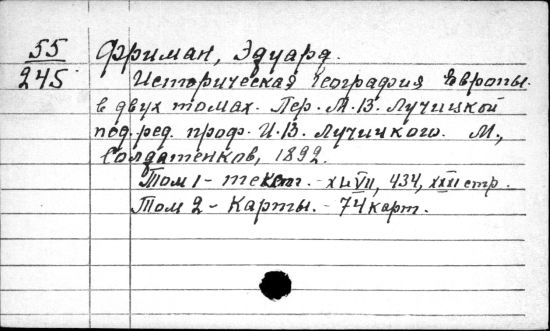 55 Фриман, Эдуард.
245 Историческая география Европы.
в двух томах. Пер. М.В. Лучицкой
под. ред. проф. И.В. Лучицкого. М.,
Солдатенков, 1892.
Том 1 - текст. - XLVII, 434, XXXI стр.
Том 2 - Карты. - 74 карт.